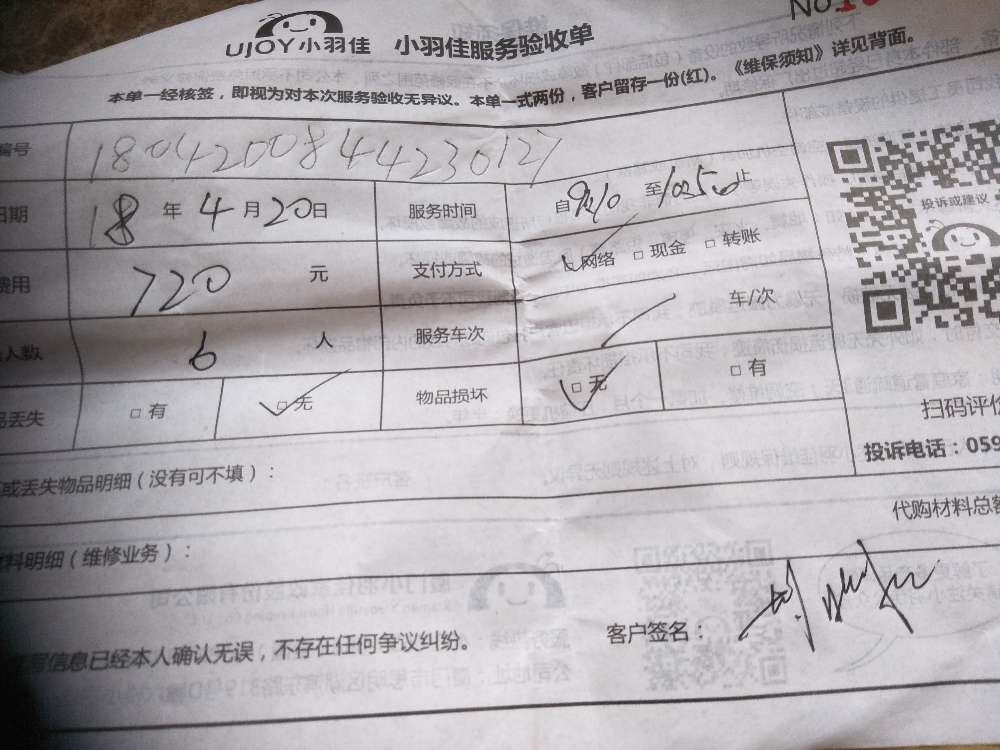 UJOY小羽佳 小羽佳服务验收单 No
本单一经核签，即视为对本次服务验收无异议。本单一式两份，客户留存一份(红)。《维保须知》详见背面。
编号 180420084423012
日期 18 年 4 月 20 日 服务时间 自 至 止
费用 720 元 支付方式 网络 □ 现金 □ 转账
人数 6 人 服务车次 车/次
丢失 □ 有 □ 无 物品损坏 □ 无 □ 有
投诉或建议
扫码评价
投诉电话：059
或丢失物品明细（没有可不填）：
代购材料总
材料明细（维修业务）：
信息已经本人确认无误，不存在任何争议纠纷。
客户签名：